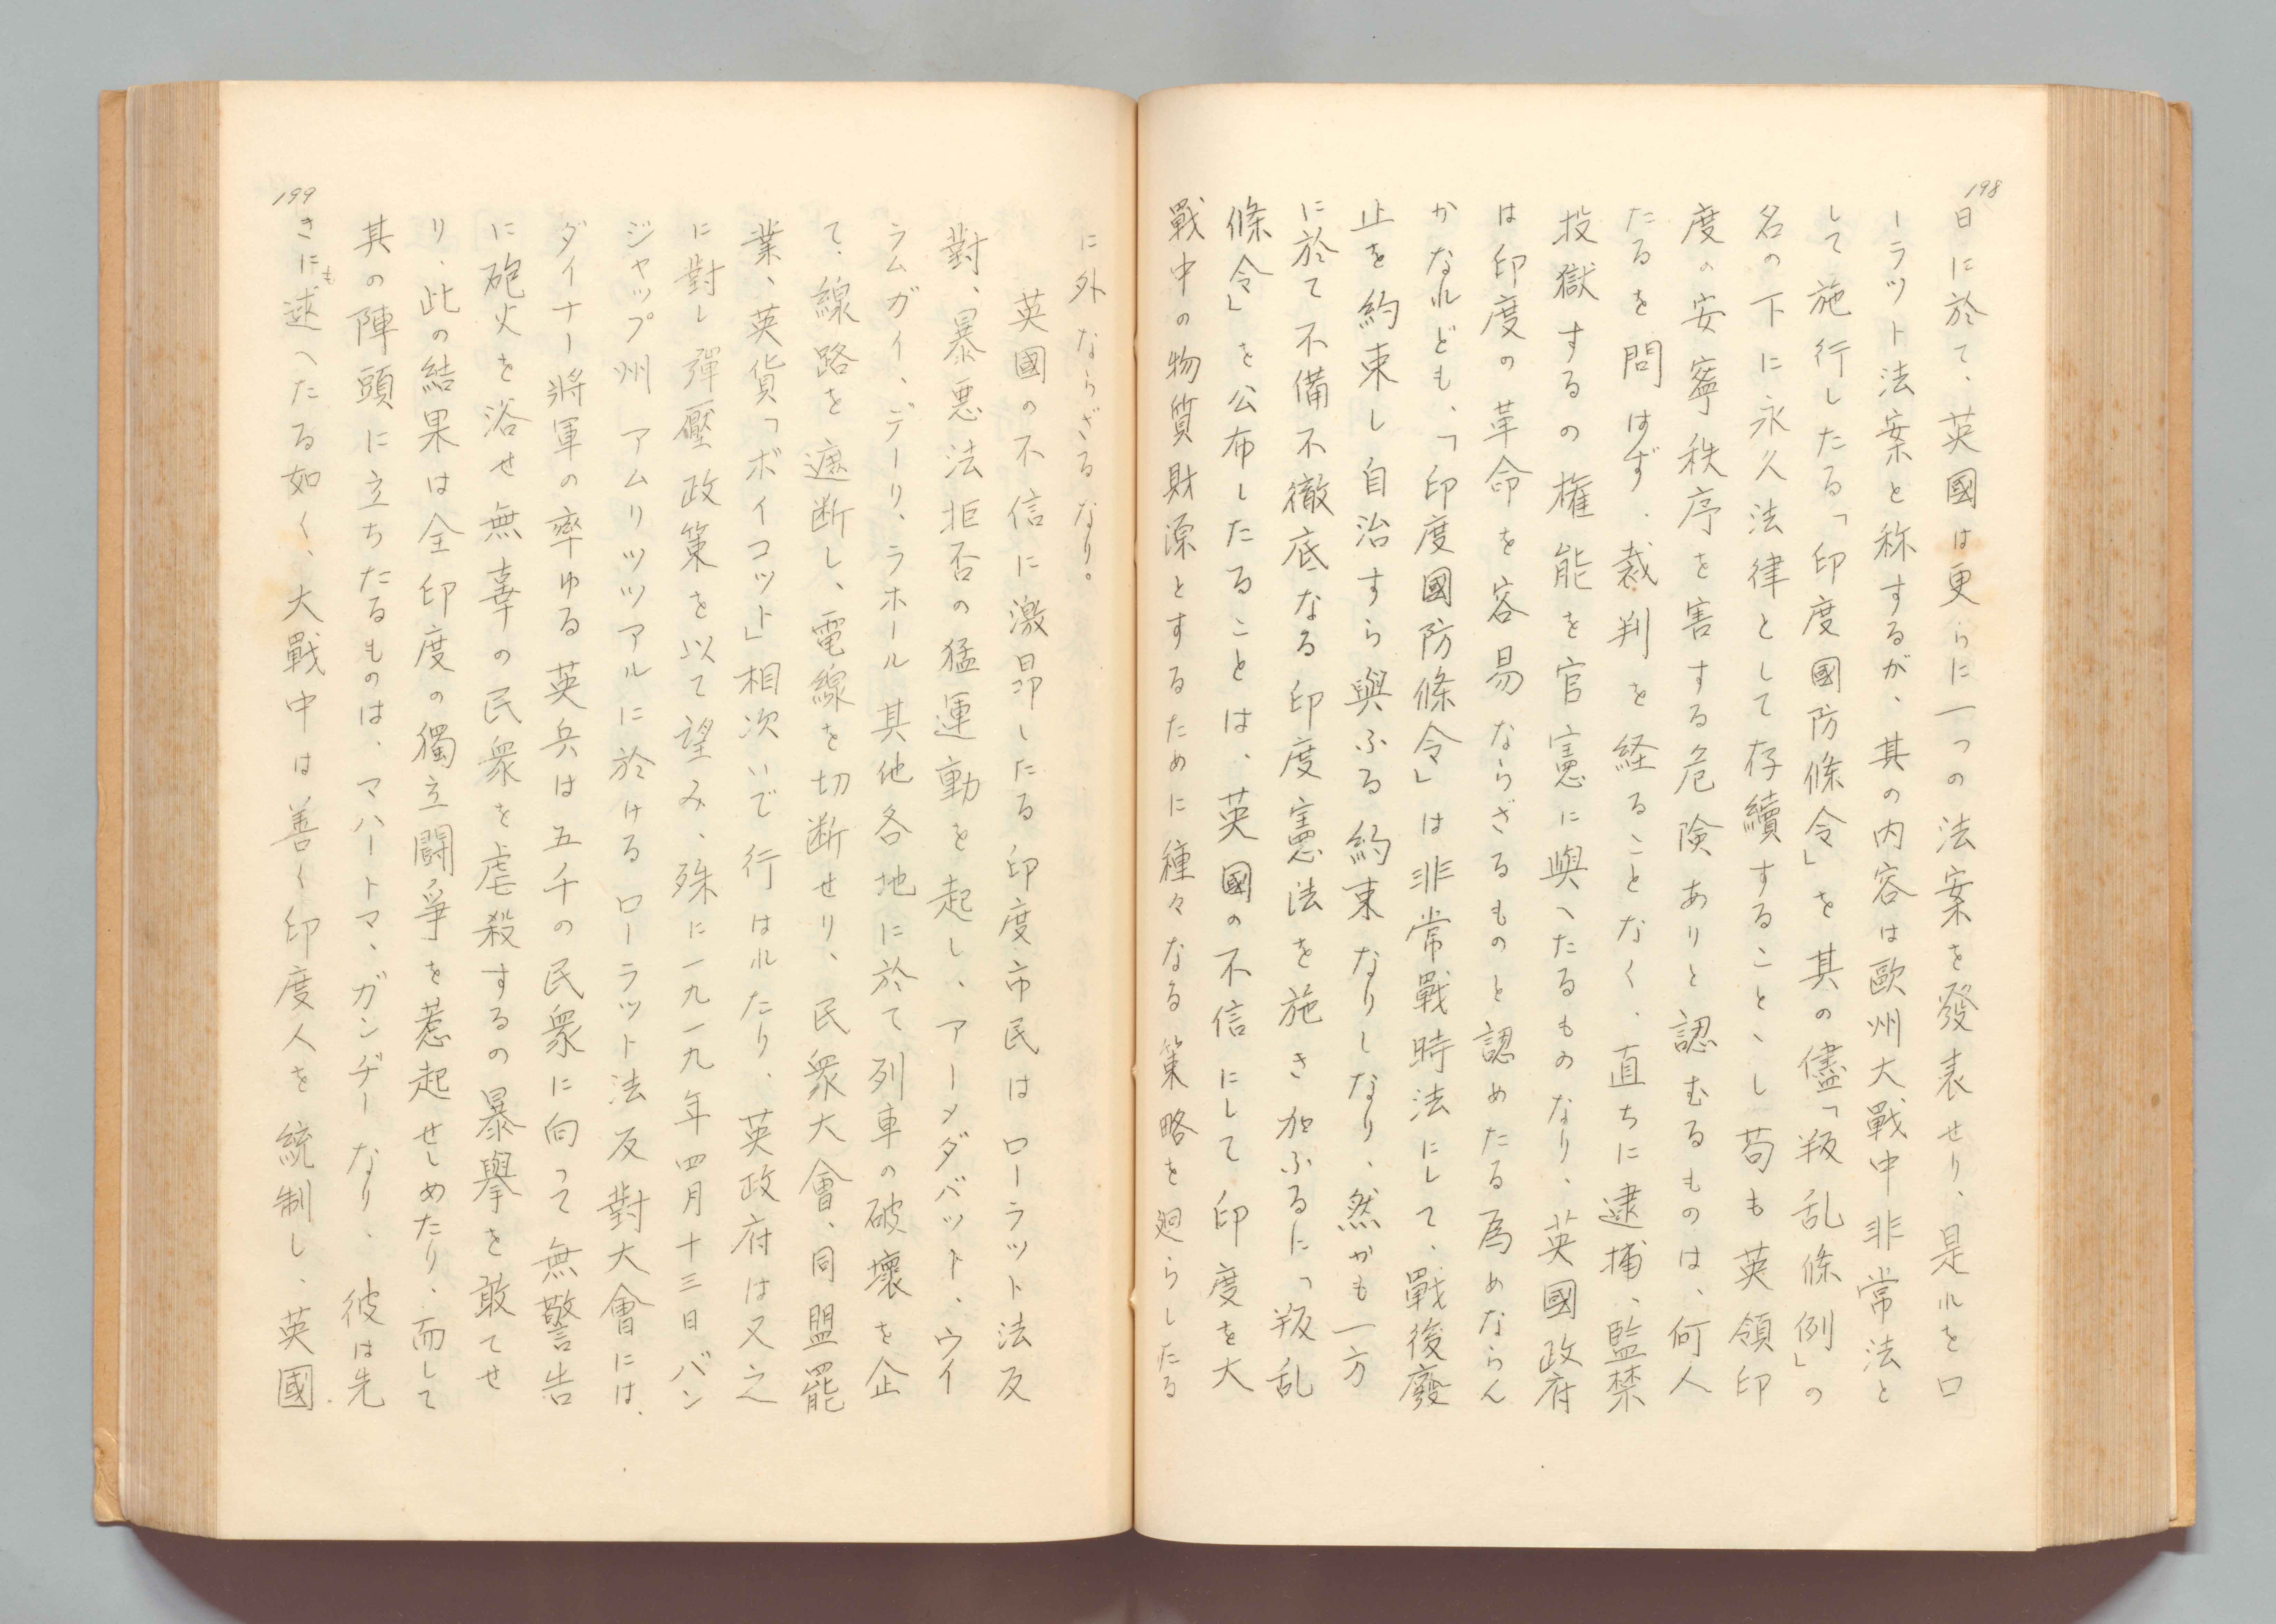 198
日に於て、英國は更らに一つの法案を發表せり、是れをロ
ーラット法案と称するが、其の内容は歐州大戰中非常法と
して施行したる「印度國防條令」を其の儘「叛乱條例」の
名の下に永久法律として存續すること、し苟も英領印
度の安寧秩序を害する危険ありと認むるものは、何人
たるを問はず、裁判を経ることなく、直ちに逮捕、監禁
投獄するの権能を官憲に與へたるものなり、英國政府
は印度の革命を容易ならざるものと認めたる為めならん
かなれども、「印度國防條令」は非常戰時法にして、戰後廢
止を約束し自治すら與ふる約束なりしなり、然かも一方
に於て不備不徹底なる印度憲法を施き加ふるに「叛乱
條令」を公布したることは、英國の不信にして印度を大
戰中の物質財源とするために種々なる策略を廻らしたる
に外ならざるなり。
英國の不信に激昂したる印度市民はローラット法反
對、暴悪法拒否の猛運動を起し、アーメダバット、ウイ
ラムガイ、デーリ、ラホール其他各地に於て列車の破壊を企
て、線路を遮断し、電線を切断せり、民衆大會、同盟罷
業、英貨「ボイコット」相次いで行はれたり、英政府は又之
に對し彈壓政策を以て望み、殊に一九一九年四月十三日バン
ジャップ州アムリッツアルに於けるローラット法反對大會には、
ダイナー將軍の率ゆる英兵は五千の民衆に向って無警告
に砲火を浴せ無辜の民衆を虐殺するの暴擧を敢てせ
り、此の結果は全印度の獨立闘爭を惹起せしめたり、而して
其の陣頭に立ちたるものは、マハートマ、ガンヂーなり、彼は先
きにも述へたる如く、大戰中は善く印度人を統制し、英國
199